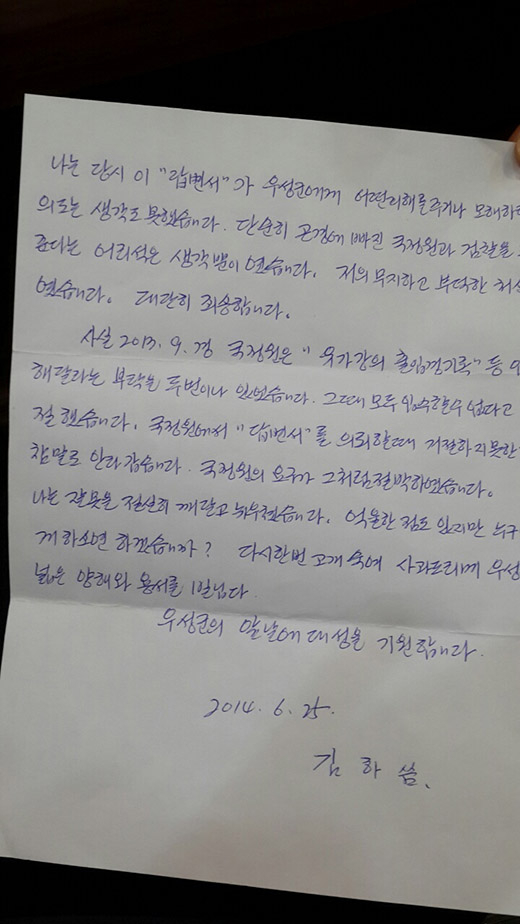 나는 당시 이 "답변서"가 우성군에게 어떤리해를주거나 모해하려
의도는 생각도 못했습니다. 단순히 곤경에 빠진 국정원과 검찰을
준다는 어리석은 생각뿐이 였습니다. 저의 무지하고 부덕한
였습니다. 대단히 죄송합니다.
사실 2013. 9. 경 국정원은 "유가강의 출입경기록" 등
해달라는 부탁을 두번이나 있었습니다. 그때 모두 입수할수 없다고
절했습니다. 국정원에서 "답변서"를 의뢰할때 거절하지못한
참말로 안타깝습니다. 국정원의 요구가 그처럼절박하였습니다.
나는 잘못을 절실히 깨닫고 뉘우쳤습니다. 억울한 점도 있지만 누구
께 하소연 하겠습니까? 다시한번 고개 숙여 사과드리며 우성
넓은 양해와 용서를 빌닙다
우성군의 앞날에 대성을 기원합니다.
2014. 6. 25.
김 하 씀.